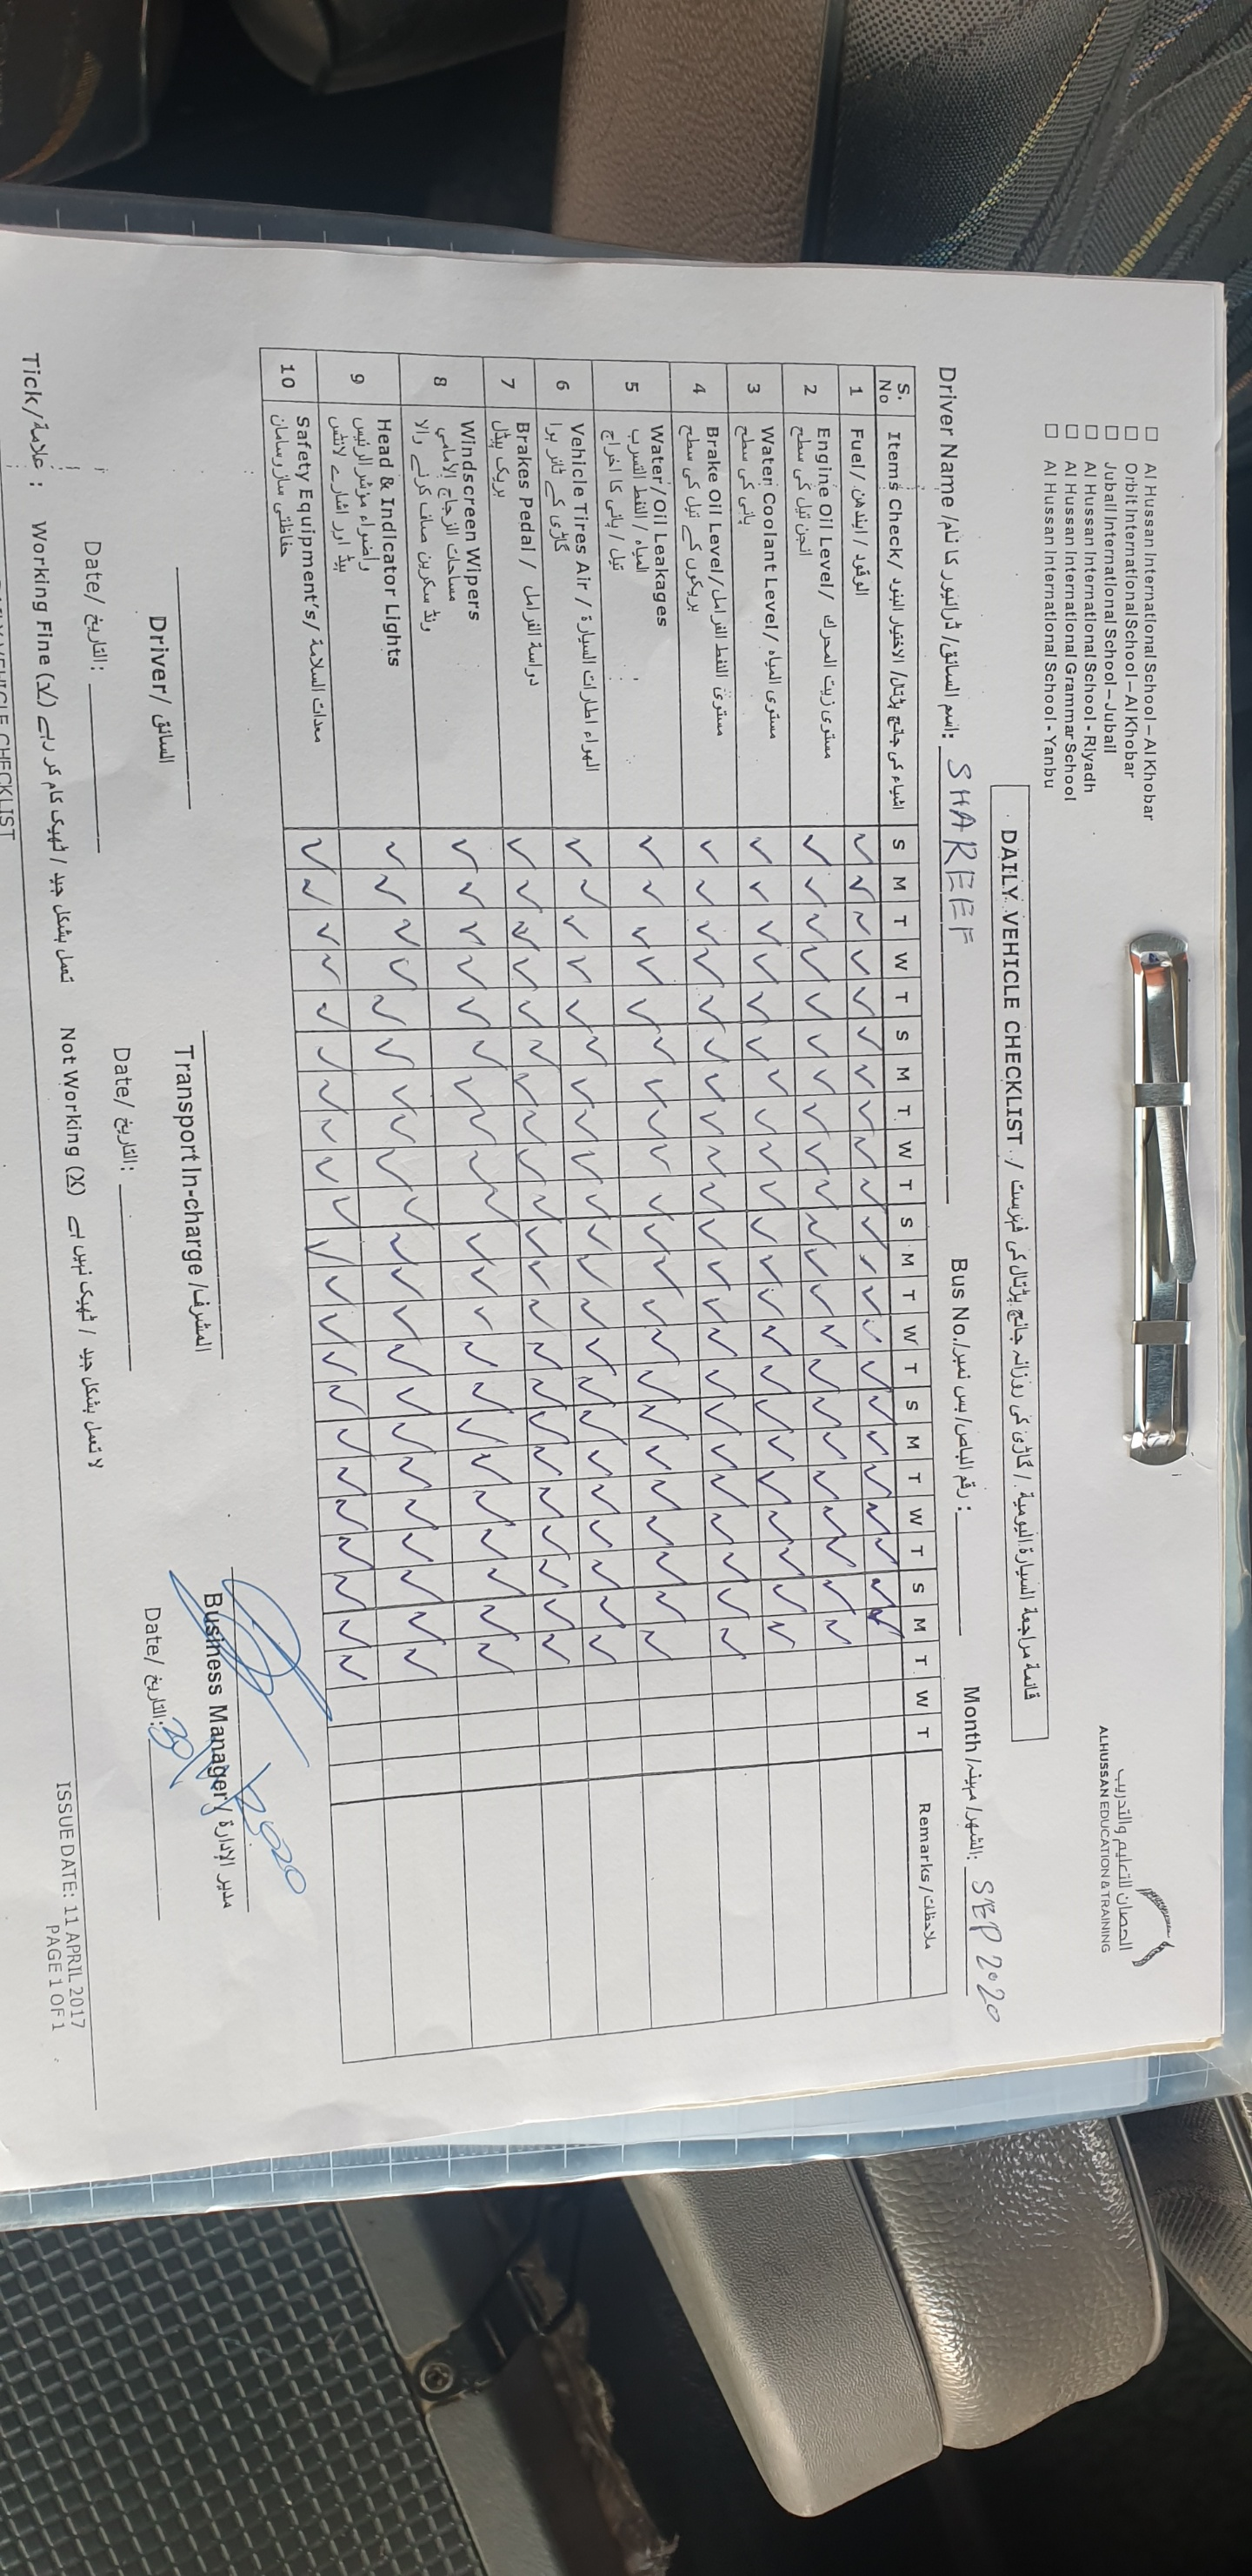 □ Al Hussan International School – Al Khobar
□ Orbit International School – Al Khobar
□ Jubail International School – Jubail
□ Al Hussan International School - Riyadh
□ Al Hussan International Grammar School
□ Al Hussan International School - Yanbu
الحصان للتعليم والتدريب
ALHUSSAN EDUCATION & TRAINING
DAILY VEHICLE CHECKLIST / قائمة مراجعة السيارة اليومية / گاڑی کی روزانہ جانچ پڑتال کی فہرست
Driver Name /اسم السائق/ ڈرائیور کا نام: SHAREEF Bus No./رقم الباص/ بس نمبر: Month/الشهر/ مہینہ: SEP 2020
S. No Items Check/ الاختيار البنود /اشیاء کی جانچ پڑتال S M T W T S M T W T S M T W T S M T W T S M T W T Remarks/ملاحظات
1 Fuel/ الوقود / ایندھن ✓ ✓ ✓ ✓ ✓ ✓ ✓ ✓ ✓ ✓ ✓ ✓ ✓ ✓ ✓ ✓ ✓ ✓ ✓ ✓ ✓ ✓
2 Engine Oil Level/ مستوى زيت المحرك ✓ ✓ ✓ ✓ ✓ ✓ ✓ ✓ ✓ ✓ ✓ ✓ ✓ ✓ ✓ ✓ ✓ ✓ ✓ ✓ ✓ ✓
انجن تیل کی سطح
3 Water Coolant Level/ مستوى المياه ✓ ✓ ✓ ✓ ✓ ✓ ✓ ✓ ✓ ✓ ✓ ✓ ✓ ✓ ✓ ✓ ✓ ✓ ✓ ✓ ✓ ✓
پانی کی سطح
4 Brake Oil Level/ مستوى النفط الفرامل ✓ ✓ ✓ ✓ ✓ ✓ ✓ ✓ ✓ ✓ ✓ ✓ ✓ ✓ ✓ ✓ ✓ ✓ ✓ ✓ ✓ ✓
بریکوں کے تیل کی سطح
5 Water/Oil Leakages ✓ ✓ ✓ ✓ ✓ ✓ ✓ ✓ ✓ ✓ ✓ ✓ ✓ ✓ ✓ ✓ ✓ ✓ ✓ ✓ ✓ ✓
المياه / النفط التسرب
تیل / پانی کا اخراج
6 Vehicle Tires Air / الهواء اطارات السيارة ✓ ✓ ✓ ✓ ✓ ✓ ✓ ✓ ✓ ✓ ✓ ✓ ✓ ✓ ✓ ✓ ✓ ✓ ✓ ✓ ✓ ✓
گاڑی کے ٹائر ہوا
7 Brakes Pedal / دواسة الفرامل ✓ ✓ ✓ ✓ ✓ ✓ ✓ ✓ ✓ ✓ ✓ ✓ ✓ ✓ ✓ ✓ ✓ ✓ ✓ ✓ ✓ ✓
بریک پیڈل
8 Windscreen Wipers ✓ ✓ ✓ ✓ ✓ ✓ ✓ ✓ ✓ ✓ ✓ ✓ ✓ ✓ ✓ ✓ ✓ ✓ ✓ ✓ ✓ ✓
مساحات الزجاج الأمامي
ونڈ سکرین صاف کرنے والا
9 Head & Indicator Lights ✓ ✓ ✓ ✓ ✓ ✓ ✓ ✓ ✓ ✓ ✓ ✓ ✓ ✓ ✓ ✓ ✓ ✓ ✓ ✓ ✓ ✓
واضواء مؤشر الرئيس
ہیڈ اور اشارے لائٹس
10 Safety Equipment's/ معدات السلامة ✓ ✓ ✓ ✓ ✓ ✓ ✓ ✓ ✓ ✓ ✓ ✓ ✓ ✓ ✓ ✓ ✓ ✓ ✓ ✓ ✓ ✓
حفاظتی سازوسامان
Driver/ السائق Transport In-charge /المشرف Business Manager/ مدير الإدارة
Date/ التاريخ: Date/ التاريخ: Date/ التاريخ: 30/ 2020
Tick/علامة : Working Fine (✓) تعمل بشكل جيد / ٹھیک کام کر رہے Not Working (X) لا تعمل بشكل جيد / ٹھیک نہیں ہے
DAILY VEHICLE CHECKLIST
ISSUE DATE: 11 APRIL 2017
PAGE 1 OF 1